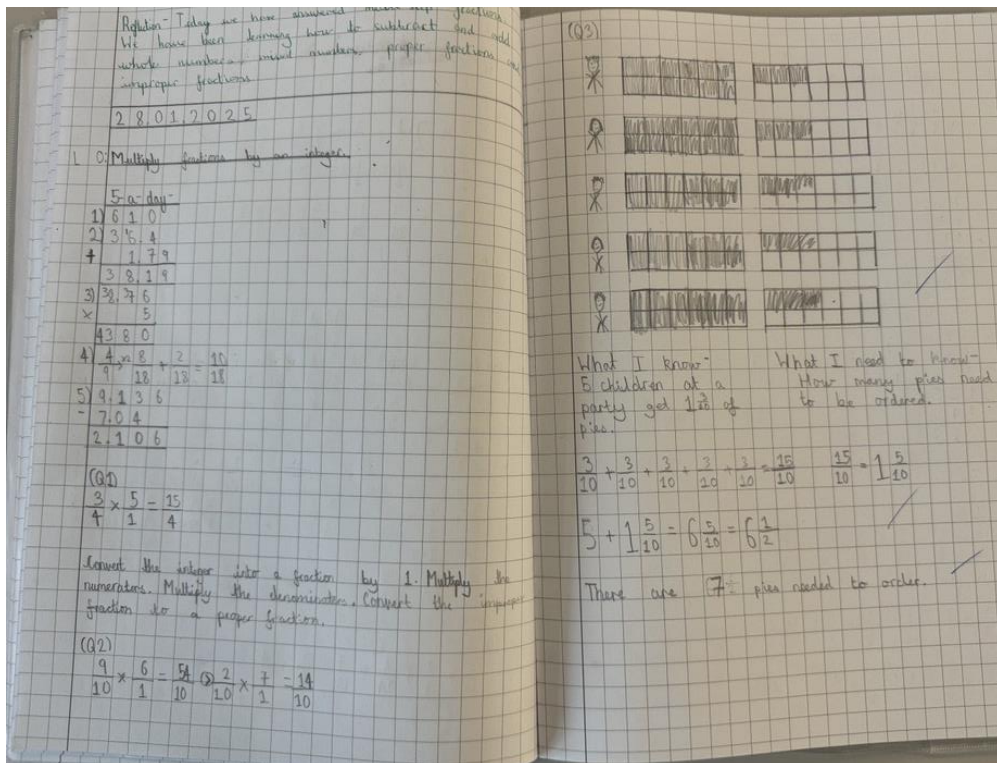 Today we have answered
We have been learning how to subtract and add
whole numbers, mixed numbers, proper fractions
improper fractions
28.01.2025
L O: Multiply fractions by an integer.
5-a-day-
1) 610
2) 36.4
+ 1.79
38.19
3) 38.76
× 5
4380
4) 4/9 8/18 + 2/18 = 10/18
5) 9.136
- 7.04
2.106
(Q1)
3/4 × 5/1 = 15/4
Convert the integer into a fraction by 1. Multiply the
numerators. Multiply the denominators. Convert the improper
fraction to a proper fraction.
(Q2)
9/10 × 6/1 = 54/10 2/10 × 7/1 = 14/10
(Q3)
What I know-
5 children at a
party get 1 3/10 of
pies.
What I need to know-
How many pies need
to be ordered.
3/10 + 3/10 + 3/10 + 3/10 + 3/10 = 15/10 15/10 = 1 5/10
5 + 1 5/10 = 6 5/10 = 6 1/2
There are 7 pies needed to order.